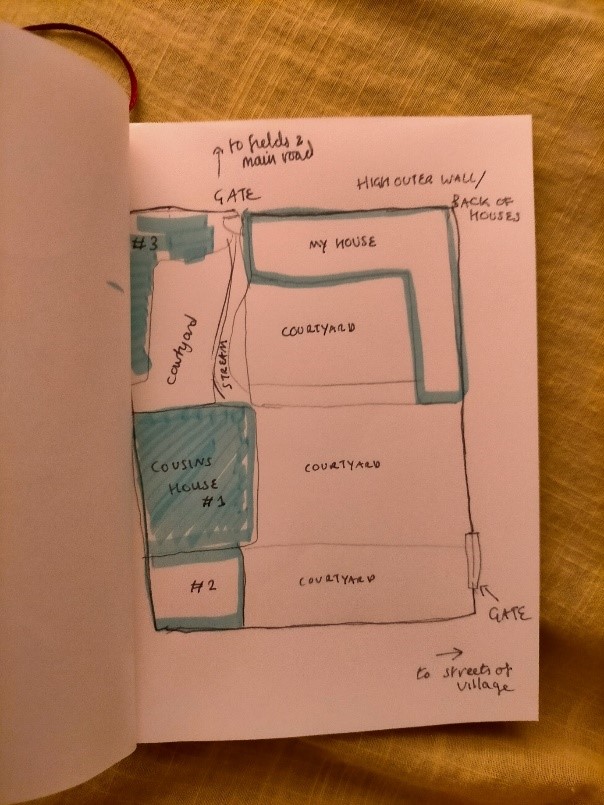 ↑ to fields &
main road
GATE
HIGH OUTER WALL/
BACK OF
HOUSES
#3
MY HOUSE
Courtyard
STREAM
COURTYARD
COUSINS
HOUSE
#1
COURTYARD
#2
COURTYARD
GATE
→
to streets of
village